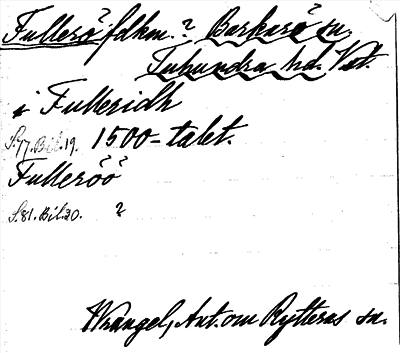 Fullerö fdkm.? Barkarö sn,
Tuhundra hd. Vstm.
i Fulleridh
S.77.Bil.19. 1500-talet.
Fulleröö
S.81.Bil.20. ?
Wrangel, Ant. om Rytterns sn.